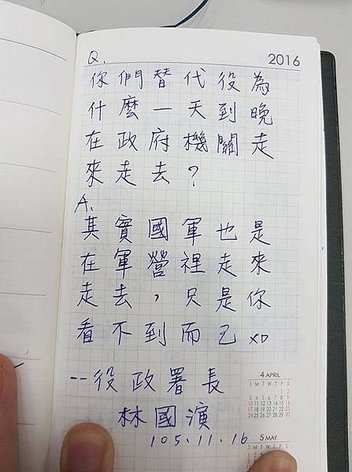 2016
Q.
你們替代役為
什麼一天到晚
在政府機關走
來走去?
A.
其實國軍也是
在軍營裡走來
走去，只是你
看不到而已 XD
--役政署長
林國演
105.11.16
4 APRIL
S M T W T F S
5 MAY